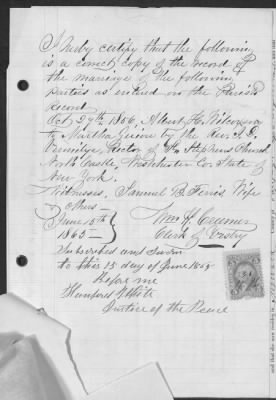 I hereby certify that the following
is a correct copy of the record of
the marriage of the following
parties as entered on the Parish
Record
Oct 27th 1856, Albert H. Wilcoxson
to Martha Guion by the Rev. A. D.
Vermilye, Rector of St. Stephens Church
North Castle, Westchester Co. State of
New York.
Witnesses, Samuel B. Ferris, Wife
& others —
June 15th
1865 —
Clerk of Vestry
Subscribed and Sworn
to this 15 day of June 1865
Before me
Justice of the Peace